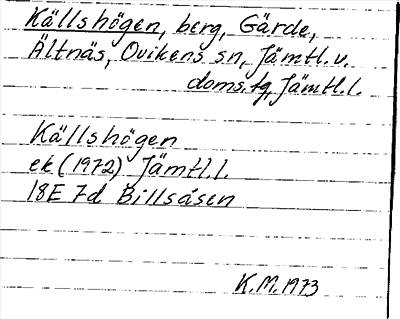 Källshögen, berg, Gärde,
Ältnäs, Ovikens sn, Jämtl. v.
doms.tg, Jämtl.l.
Källshögen
ek (1972) Jämtl.l.
18E 7d Billsåsen
K.M. 1973